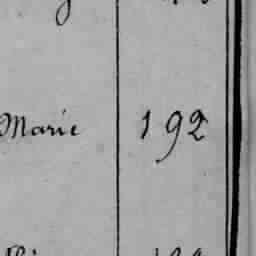 Marie 192